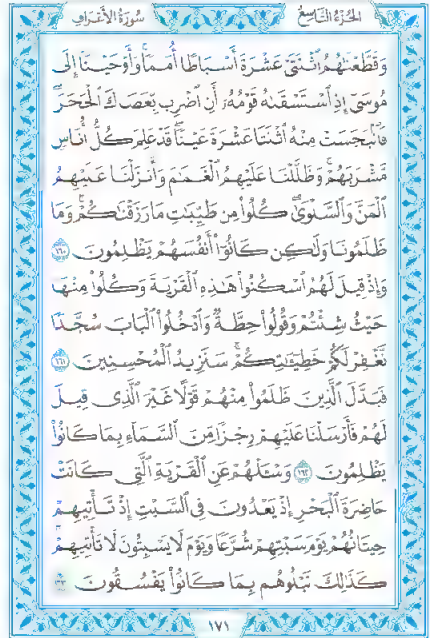 الجزء التاسع
سورة الأعراف
وَقَطَّعْنَٰهُمُ ٱثْنَتَىْ عَشْرَةَ أَسْبَاطًا أُمَمًا ۚ وَأَوْحَيْنَآ إِلَىٰ
مُوسَىٰٓ إِذِ ٱسْتَسْقَىٰهُ قَوْمُهُۥٓ أَنِ ٱضْرِب بِّعَصَاكَ ٱلْحَجَرَ ۖ
فَٱنۢبَجَسَتْ مِنْهُ ٱثْنَتَا عَشْرَةَ عَيْنًا ۖ قَدْ عَلِمَ كُلُّ أُنَاسٍ
مَّشْرَبَهُمْ ۚ وَظَلَّلْنَا عَلَيْهِمُ ٱلْغَمَٰمَ وَأَنزَلْنَا عَلَيْهِمُ
ٱلْمَنَّ وَٱلسَّلْوَىٰ ۖ كُلُوا۟ مِن طَيِّبَٰتِ مَا رَزَقْنَٰكُمْ ۚ وَمَا
ظَلَمُونَا وَلَٰكِن كَانُوٓا۟ أَنفُسَهُمْ يَظْلِمُونَ ١٦٠
وَإِذْ قِيلَ لَهُمُ ٱسْكُنُوا۟ هَٰذِهِ ٱلْقَرْيَةَ وَكُلُوا۟ مِنْهَا
حَيْثُ شِئْتُمْ وَقُولُوا۟ حِطَّةٌ وَٱدْخُلُوا۟ ٱلْبَابَ سُجَّدًا
نَّغْفِرْ لَكُمْ خَطِيٓـَٰٔتِكُمْ ۚ سَنَزِيدُ ٱلْمُحْسِنِينَ ١٦١
فَبَدَّلَ ٱلَّذِينَ ظَلَمُوا۟ مِنْهُمْ قَوْلًا غَيْرَ ٱلَّذِى قِيلَ
لَهُمْ فَأَرْسَلْنَا عَلَيْهِمْ رِجْزًا مِّنَ ٱلسَّمَآءِ بِمَا كَانُوا۟
يَظْلِمُونَ ١٦٢ وَسْـَٔلْهُمْ عَنِ ٱلْقَرْيَةِ ٱلَّتِى كَانَتْ
حَاضِرَةَ ٱلْبَحْرِ إِذْ يَعْدُونَ فِى ٱلسَّبْتِ إِذْ تَأْتِيهِمْ
حِيتَانُهُمْ يَوْمَ سَبْتِهِمْ شُرَّعًا وَيَوْمَ لَا يَسْبِتُونَ ۙ لَا تَأْتِيهِمْ ۚ
كَذَٰلِكَ نَبْلُوهُم بِمَا كَانُوا۟ يَفْسُقُونَ ١٦٣
١٧١